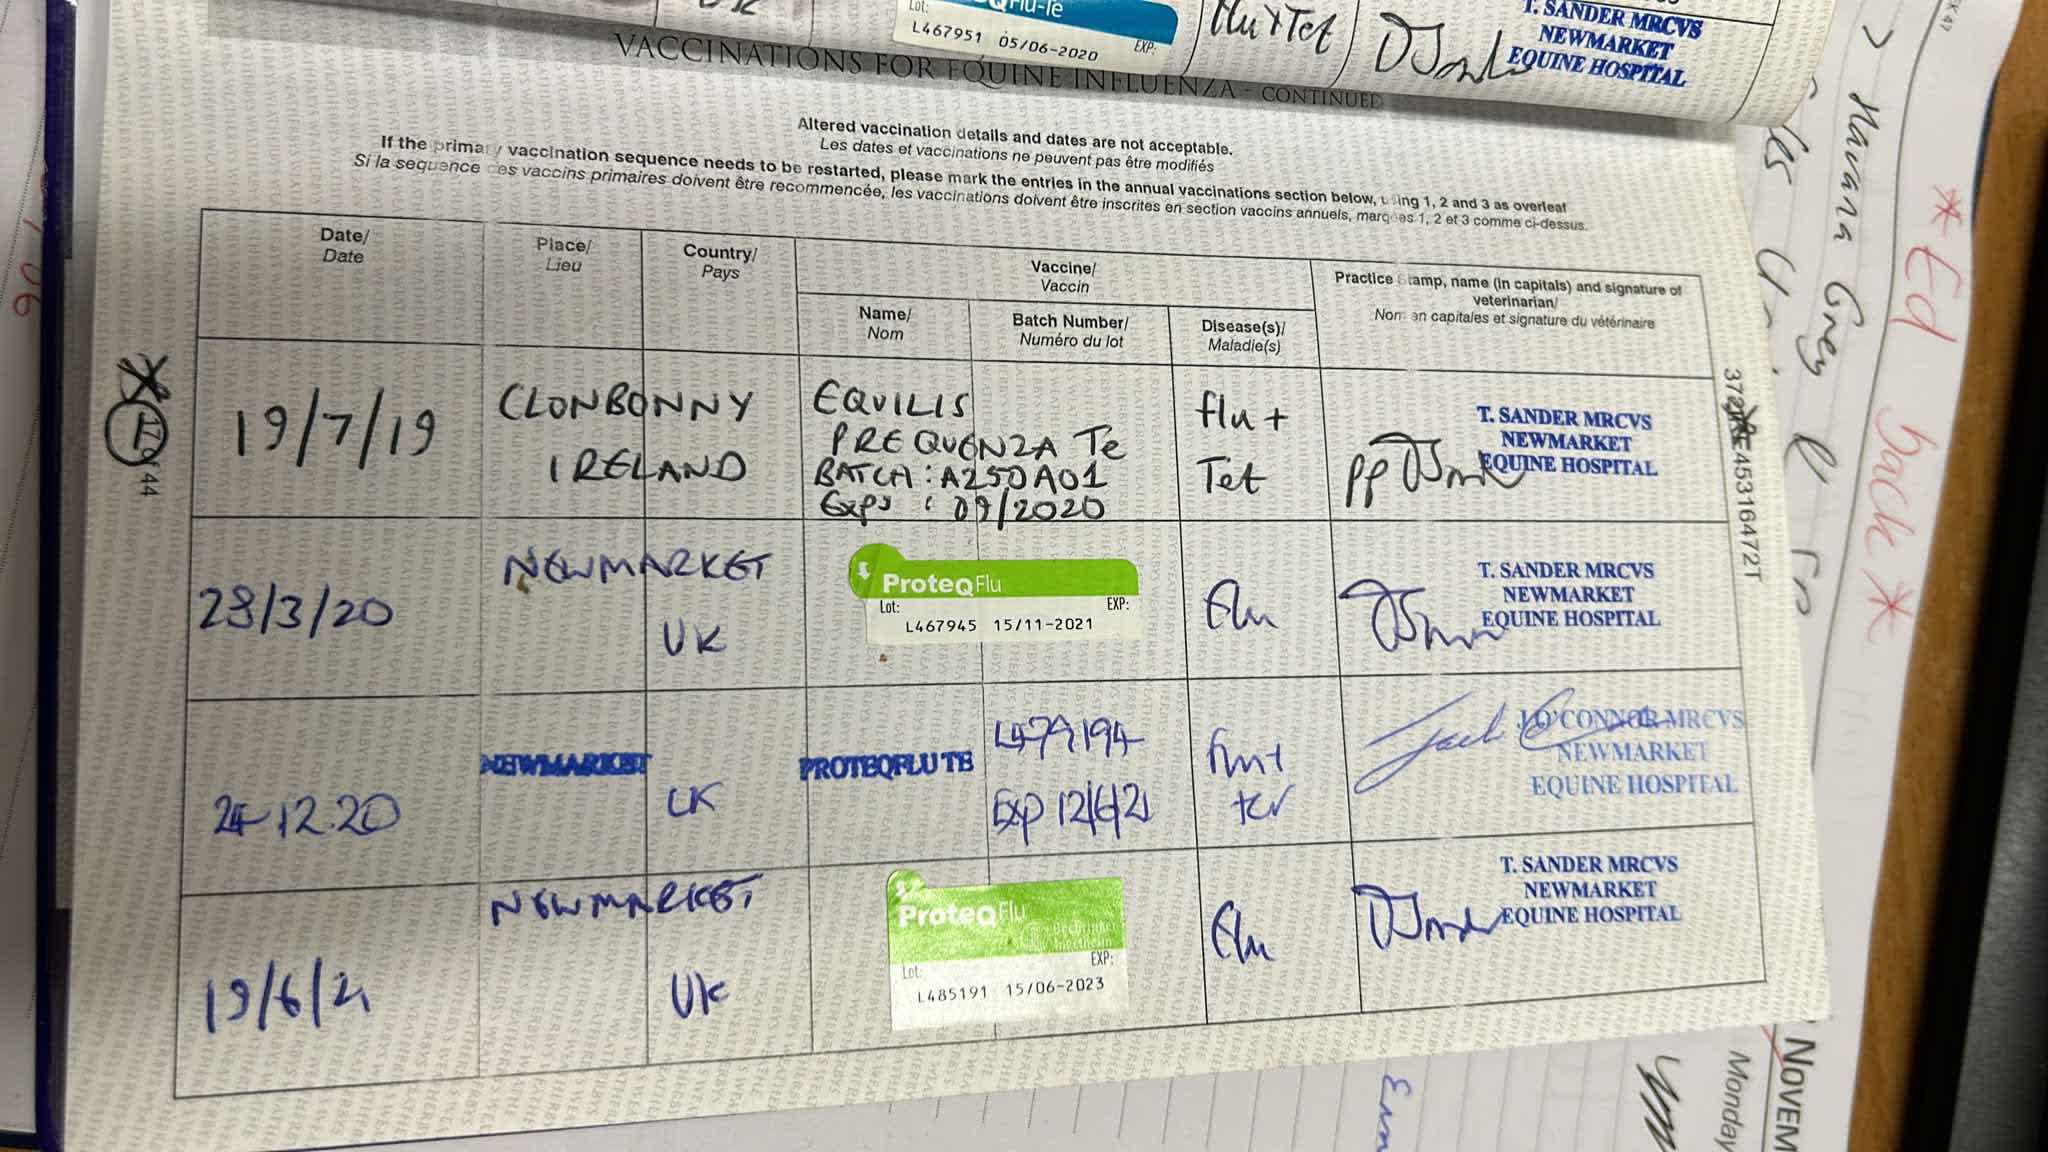 Lot:
L467951 05/06-2020 EXP:
Flu + Tet
T. SANDER MRCVS
NEWMARKET
EQUINE HOSPITAL
VACCINATIONS FOR EQUINE INFLUENZA - CONTINUED
Altered vaccination details and dates are not acceptable.
Les dates et vaccinations ne peuvent pas être modifiés
If the primary vaccination sequence needs to be restarted, please mark the entries in the annual vaccinations section below, using 1, 2 and 3 as overleaf
Si la sequence des vaccins primaires doivent être recommencée, les vaccinations doivent être inscrites en section vaccins annuels, marques 1, 2 et 3 comme ci-dessus.
Date/
Date
Place/
Lieu
Country/
Pays
Vaccine/
Vaccin
Name/
Nom
Batch Number/
Numéro du lot
Disease(s)/
Maladie(s)
Practice Stamp, name (in capitals) and signature of
veterinarian/
Nom en capitales et signature du vétérinaire
19/7/19
CLONBONNY
IRELAND
EQUILIS
PREQUENZA Te
BATCH: A250A01
Exp: 09/2020
flu +
Tet
pp
T. SANDER MRCVS
NEWMARKET
EQUINE HOSPITAL
28/3/20
NEWMARKET
UK
ProteqFlu
Lot: EXP:
L467945 15/11-2021
Flu
T. SANDER MRCVS
NEWMARKET
EQUINE HOSPITAL
24.12.20
NEWMARKET
UK
PROTEQFLU TE
L479194
Exp 12/6/21
Flu+
tet
J O'CONNOR MRCVS
NEWMARKET
EQUINE HOSPITAL
19/6/21
NEWMARKET
UK
ProteqFlu
Boehringer
Ingelheim
Lot: EXP:
L485191 15/06-2023
Flu
T. SANDER MRCVS
NEWMARKET
EQUINE HOSPITAL
17 of 44
45316472T
* Ed back *
Havana Grey
NOVEM
Monday